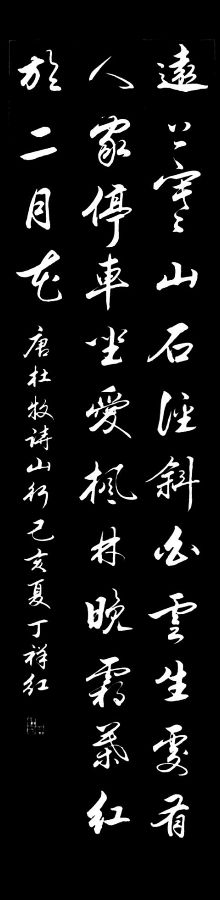 遠上寒山石徑斜白雲生處有
人家停車坐愛楓林晚霜葉紅
於二月花
唐杜牧詩山行己亥夏丁祥红